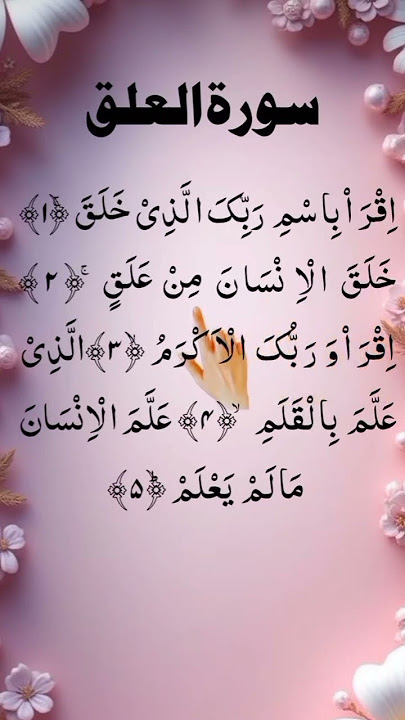 سورة العلق
اِقْرَاْ بِاسْمِ رَبِّکَ الَّذِیْ خَلَقَ ﴿۱﴾ۚ
خَلَقَ الْاِنْسَانَ مِنْ عَلَقٍ ﴿۲﴾ۚ
اِقْرَاْ وَ رَبُّکَ الْاَکْرَمُ ﴿۳﴾ الَّذِیْ
عَلَّمَ بِالْقَلَمِ ﴿۴﴾ۙ عَلَّمَ الْاِنْسَانَ
مَا لَمْ یَعْلَمْ ﴿۵﴾ؕ